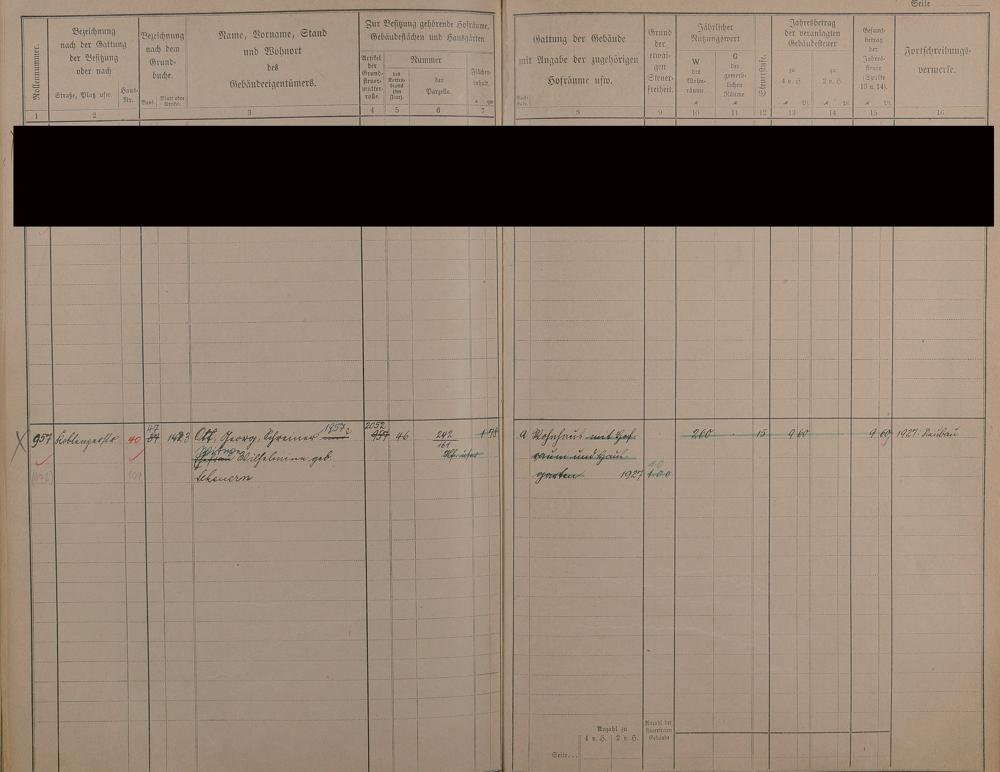 Seite
Rollennummer.
Bezeichnung
nach der Gattung
der Besitzung
oder nach
Straße, Platz usw.
Haus-
Nr.
Bezeichnung
nach dem
Grund-
buche.
Band.
Blatt oder
Artikel.
Name, Vorname, Stand
und Wohnort
des
Gebäudeeigentümers.
Zur Besitzung gehörende Hofräume,
Gebäudeflächen und Hausgärten.
Artikel
der
Grund-
steuer-
mutter-
rolle.
Nummer
des
Karten-
blatts
(der
Flur).
der
Parzelle.
Flächen-
inhalt.
a qm
1 2 3 4 5 6 7
Gattung der Gebäude
mit Angabe der zugehörigen
Hofräume usw.
Grund
der
etwai-
gen
Steuer-
freiheit.
Jährlicher
Nutzungswert
W
der
Wohn-
räume.
G
der
gewerb-
lichen
Räume
Steuerstufe.
Jahresbetrag
der veranlagten
Gebäudesteuer
zu
4 v. H.
zu
2 v. H.
Gesamt-
betrag
der
Jahres-
steuer
(Spalte
13 u. 14).
Fortschreibungs-
vermerke.
8 9 10 11 12 13 14 15 16
957 Koblenzerstr. 40 1423 Ott, Georg, Schreiner
Wilhelmine geb.
2052
46 242
a Wohnhaus mit Hof-
raum und Haus-
garten 1927
260 15 9 60 9 60 1927 Neubau
Anzahl zu
4 v. H. 2 v. H.
Anzahl der
steuerfreien
Gebäude
Seite...